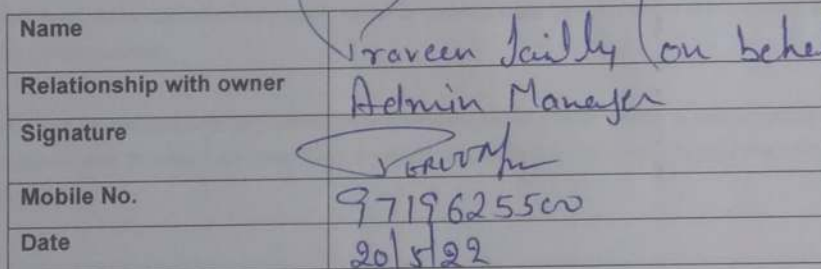 Name Praveen (on beha
Relationship with owner Admin Manager
Signature
Mobile No. 9719625500
Date 20/5/22